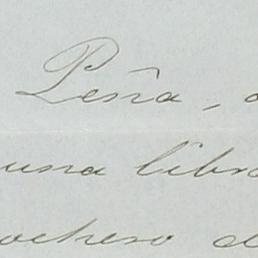 Peña, a
una libr
ochero d